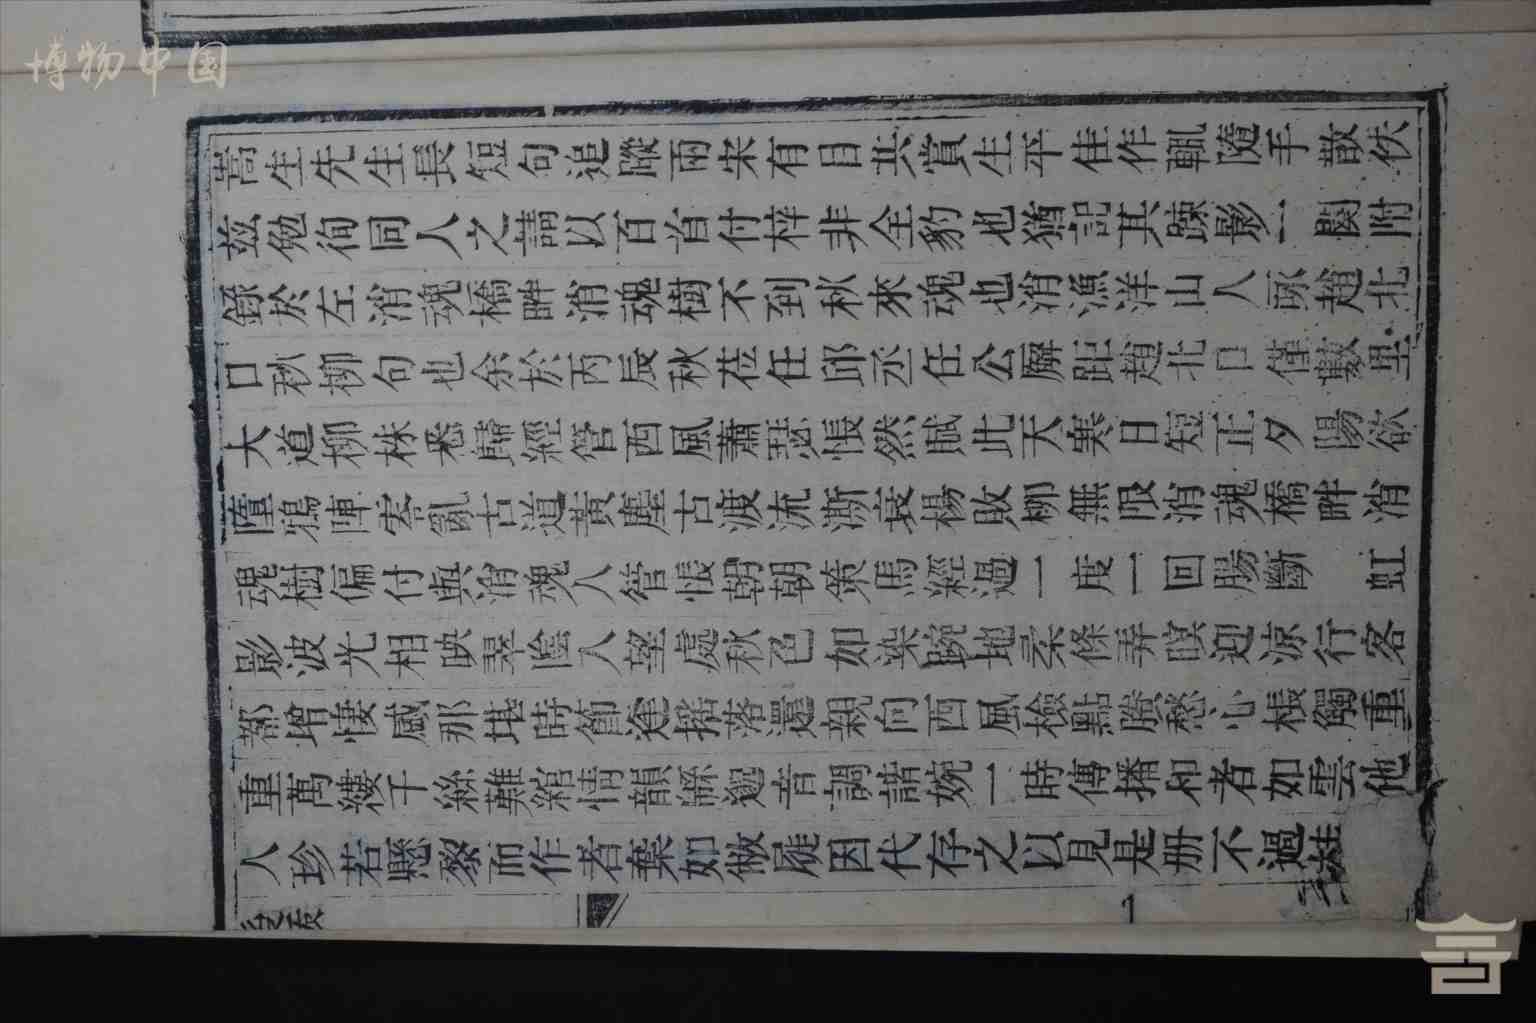 博物中国
嵩生先生長短句追蹤兩宋有目共賞生平佳作輒隨手散佚
茲勉徇同人之請以百首付梓非全豹也猶記其踈影一闋附
錄於左消魂橋畔消魂樹不到秋來魂也消漁洋山人詠趙北
口秋柳句也余於丙辰秋莅任邱丞任公廨距趙北口僅數里
大道柳株悉歸經管西風蕭瑟悵然賦此天寒日短正夕陽欲
墮鴉陣寒亂古道黃塵古渡流澌衰楊敗柳無限消魂橋畔消
魂樹偏付與消魂人管悵朝朝策馬經過一度一回腸斷 虹
影波光相映翠陰入望處秋色如染踠地柔條弄暝迎涼行客
都增悽感那堪時節逢搖落還親向西風檢點勝愁心棖觸重
重萬縷千絲難綰情韻緜邈音調諧婉一時傳播和者如雲他
人珍若懸黎而作者棄如敝屣因代存之以見是册不過 
一